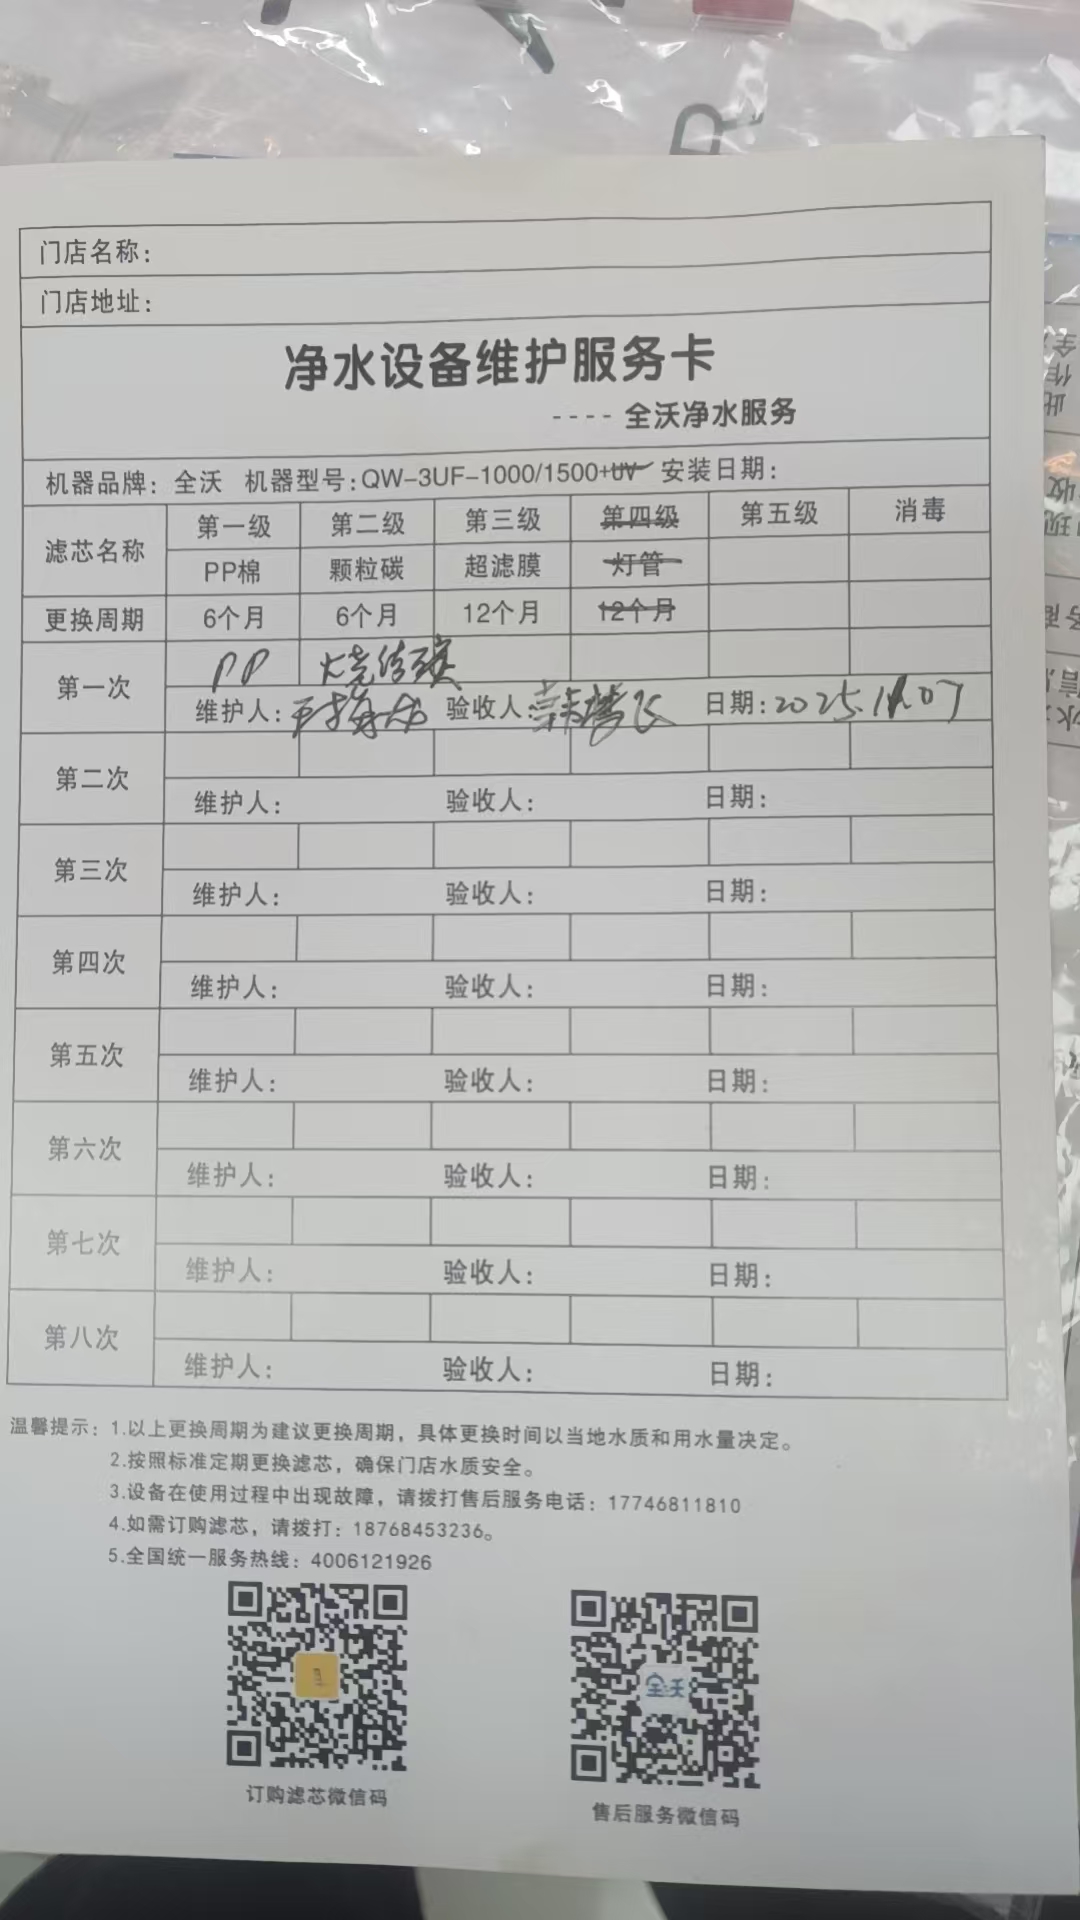 门店名称：
门店地址：
净水设备维护服务卡
---- 全沃净水服务
机器品牌：全沃 机器型号：QW-3UF-1000/1500+UV 安装日期：
滤芯名称 第一级 第二级 第三级 第四级 第五级 消毒
PP棉 颗粒碳 超滤膜 灯管
更换周期 6个月 6个月 12个月 12个月
第一次 PP
维护人： 验收人： 日期：2025.11.07
第二次
维护人： 验收人： 日期：
第三次
维护人： 验收人： 日期：
第四次
维护人： 验收人： 日期：
第五次
维护人： 验收人： 日期：
第六次
维护人： 验收人： 日期：
第七次
维护人： 验收人： 日期：
第八次
维护人： 验收人： 日期：
温馨提示：1.以上更换周期为建议更换周期，具体更换时间以当地水质和用水量决定。
2.按照标准定期更换滤芯，确保门店水质安全。
3.设备在使用过程中出现故障，请拨打售后服务电话：17746811810
4.如需订购滤芯，请拨打：18768453236。
5.全国统一服务热线：4006121926
全沃
订购滤芯微信码
售后服务微信码